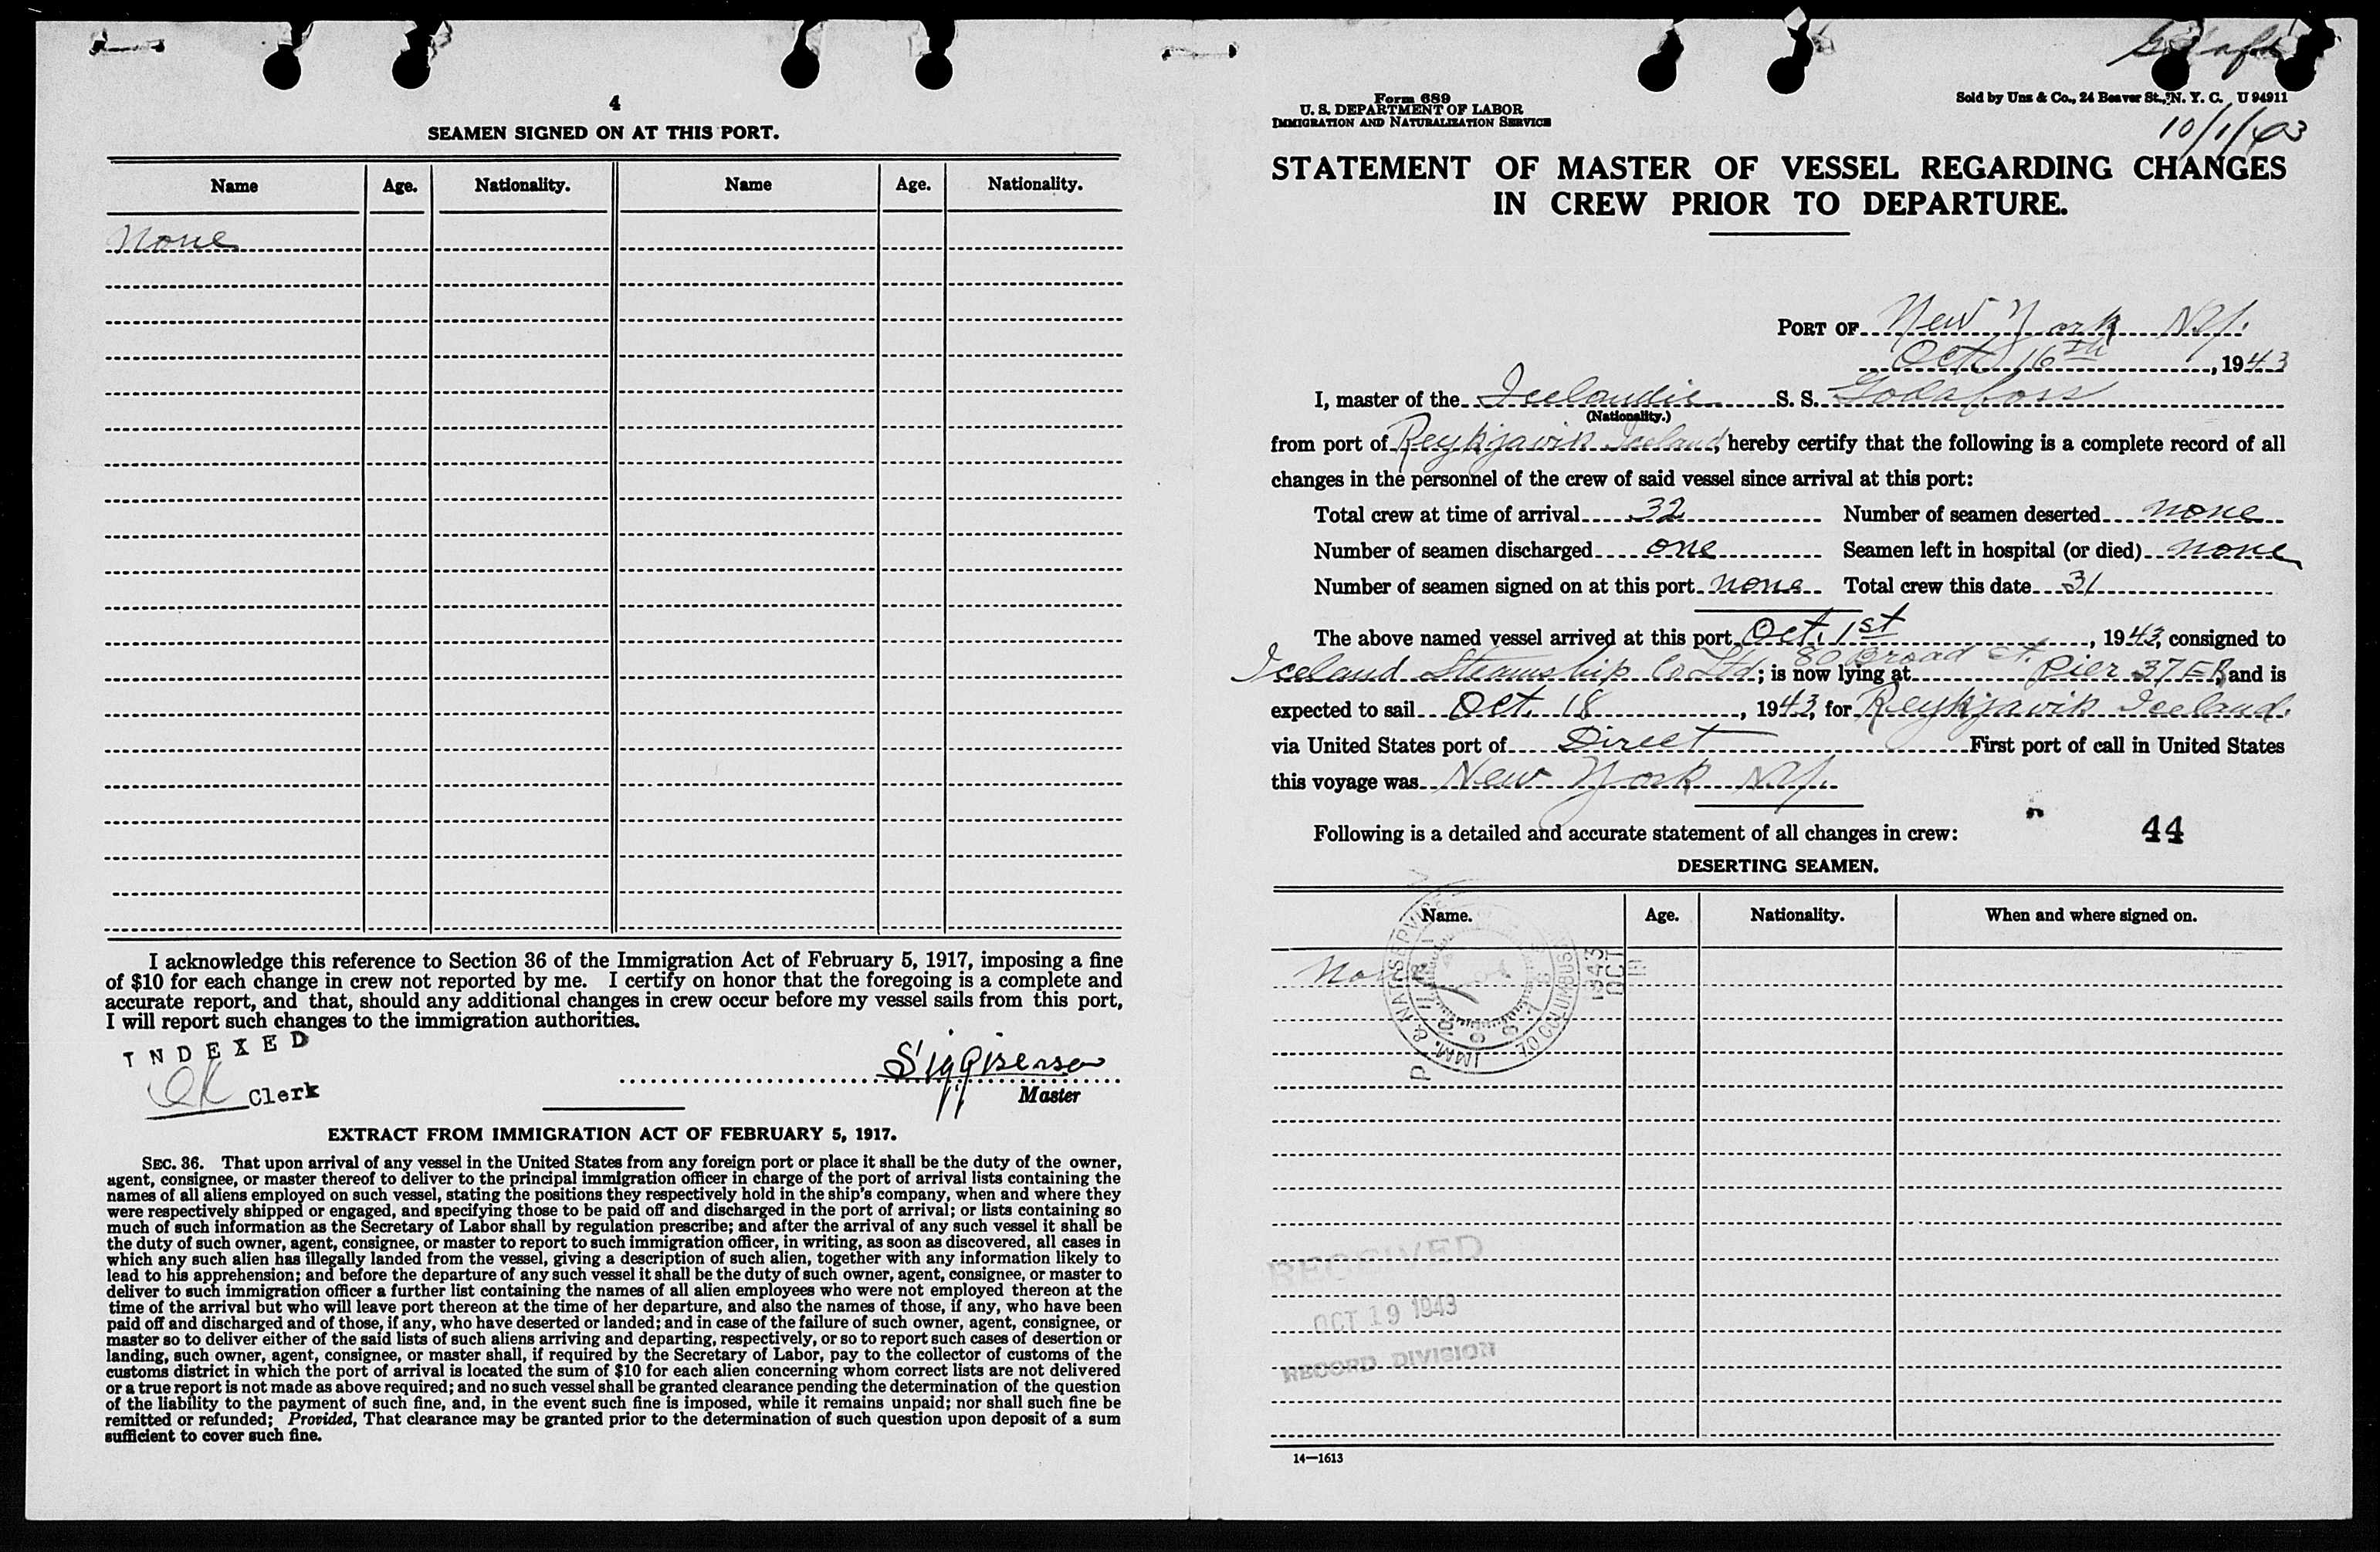 4
SEAMEN SIGNED ON AT THIS PORT.
Name Age. Nationality. Name Age. Nationality.
None
I acknowledge this reference to Section 36 of the Immigration Act of February 5, 1917, imposing a fine
of $10 for each change in crew not reported by me. I certify on honor that the foregoing is a complete and
accurate report, and that, should any additional changes in crew occur before my vessel sails from this port,
I will report such changes to the immigration authorities.
INDEXED
Clerk
Master
EXTRACT FROM IMMIGRATION ACT OF FEBRUARY 5, 1917.
SEC. 36. That upon arrival of any vessel in the United States from any foreign port or place it shall be the duty of the owner,
agent, consignee, or master thereof to deliver to the principal immigration officer in charge of the port of arrival lists containing the
names of all aliens employed on such vessel, stating the positions they respectively hold in the ship's company, when and where they
were respectively shipped or engaged, and specifying those to be paid off and discharged in the port of arrival; or lists containing so
much of such information as the Secretary of Labor shall by regulation prescribe; and after the arrival of any such vessel it shall be
the duty of such owner, agent, consignee, or master to report to such immigration officer, in writing, as soon as discovered, all cases in
which any such alien has illegally landed from the vessel, giving a description of such alien, together with any information likely to
lead to his apprehension; and before the departure of any such vessel it shall be the duty of such owner, agent, consignee, or master to
deliver to such immigration officer a further list containing the names of all alien employees who were not employed thereon at the
time of the arrival but who will leave port thereon at the time of her departure, and also the names of those, if any, who have been
paid off and discharged and of those, if any, who have deserted or landed; and in case of the failure of such owner, agent, consignee, or
master so to deliver either of the said lists of such aliens arriving and departing, respectively, or so to report such cases of desertion or
landing, such owner, agent, consignee, or master shall, if required by the Secretary of Labor, pay to the collector of customs of the
customs district in which the port of arrival is located the sum of $10 for each alien concerning whom correct lists are not delivered
or a true report is not made as above required; and no such vessel shall be granted clearance pending the determination of the question
of the liability to the payment of such fine, and, in the event such fine is imposed, while it remains unpaid; nor shall such fine be
remitted or refunded; Provided, That clearance may be granted prior to the determination of such question upon deposit of a sum
sufficient to cover such fine.
Form 689
U. S. DEPARTMENT OF LABOR
IMMIGRATION AND NATURALIZATION SERVICE
Sold by Unz & Co., 24 Beaver St., N. Y. C. U 94911
10/1/43
STATEMENT OF MASTER OF VESSEL REGARDING CHANGES
IN CREW PRIOR TO DEPARTURE.
PORT OF New York N.Y.
Oct. 16th, 1943
I, master of the Icelandic S. S. Godafoss
(Nationality.)
from port of Reykjavik Iceland, hereby certify that the following is a complete record of all
changes in the personnel of the crew of said vessel since arrival at this port:
Total crew at time of arrival 32 Number of seamen deserted none
Number of seamen discharged one Seamen left in hospital (or died) none
Number of seamen signed on at this port none Total crew this date 31
The above named vessel arrived at this port Oct. 1st, 1943, consigned to
80 Broad St.
Iceland Steamship Co Ltd; is now lying at Pier 37 E R and is
expected to sail Oct. 18, 1943, for Reykjavik Iceland.
via United States port of Direct First port of call in United States
this voyage was New York N.Y.
Following is a detailed and accurate statement of all changes in crew: 44
DESERTING SEAMEN.
Name. Age. Nationality. When and where signed on.
RECEIVED
OCT 19 1943
RECORD DIVISION
14—1613